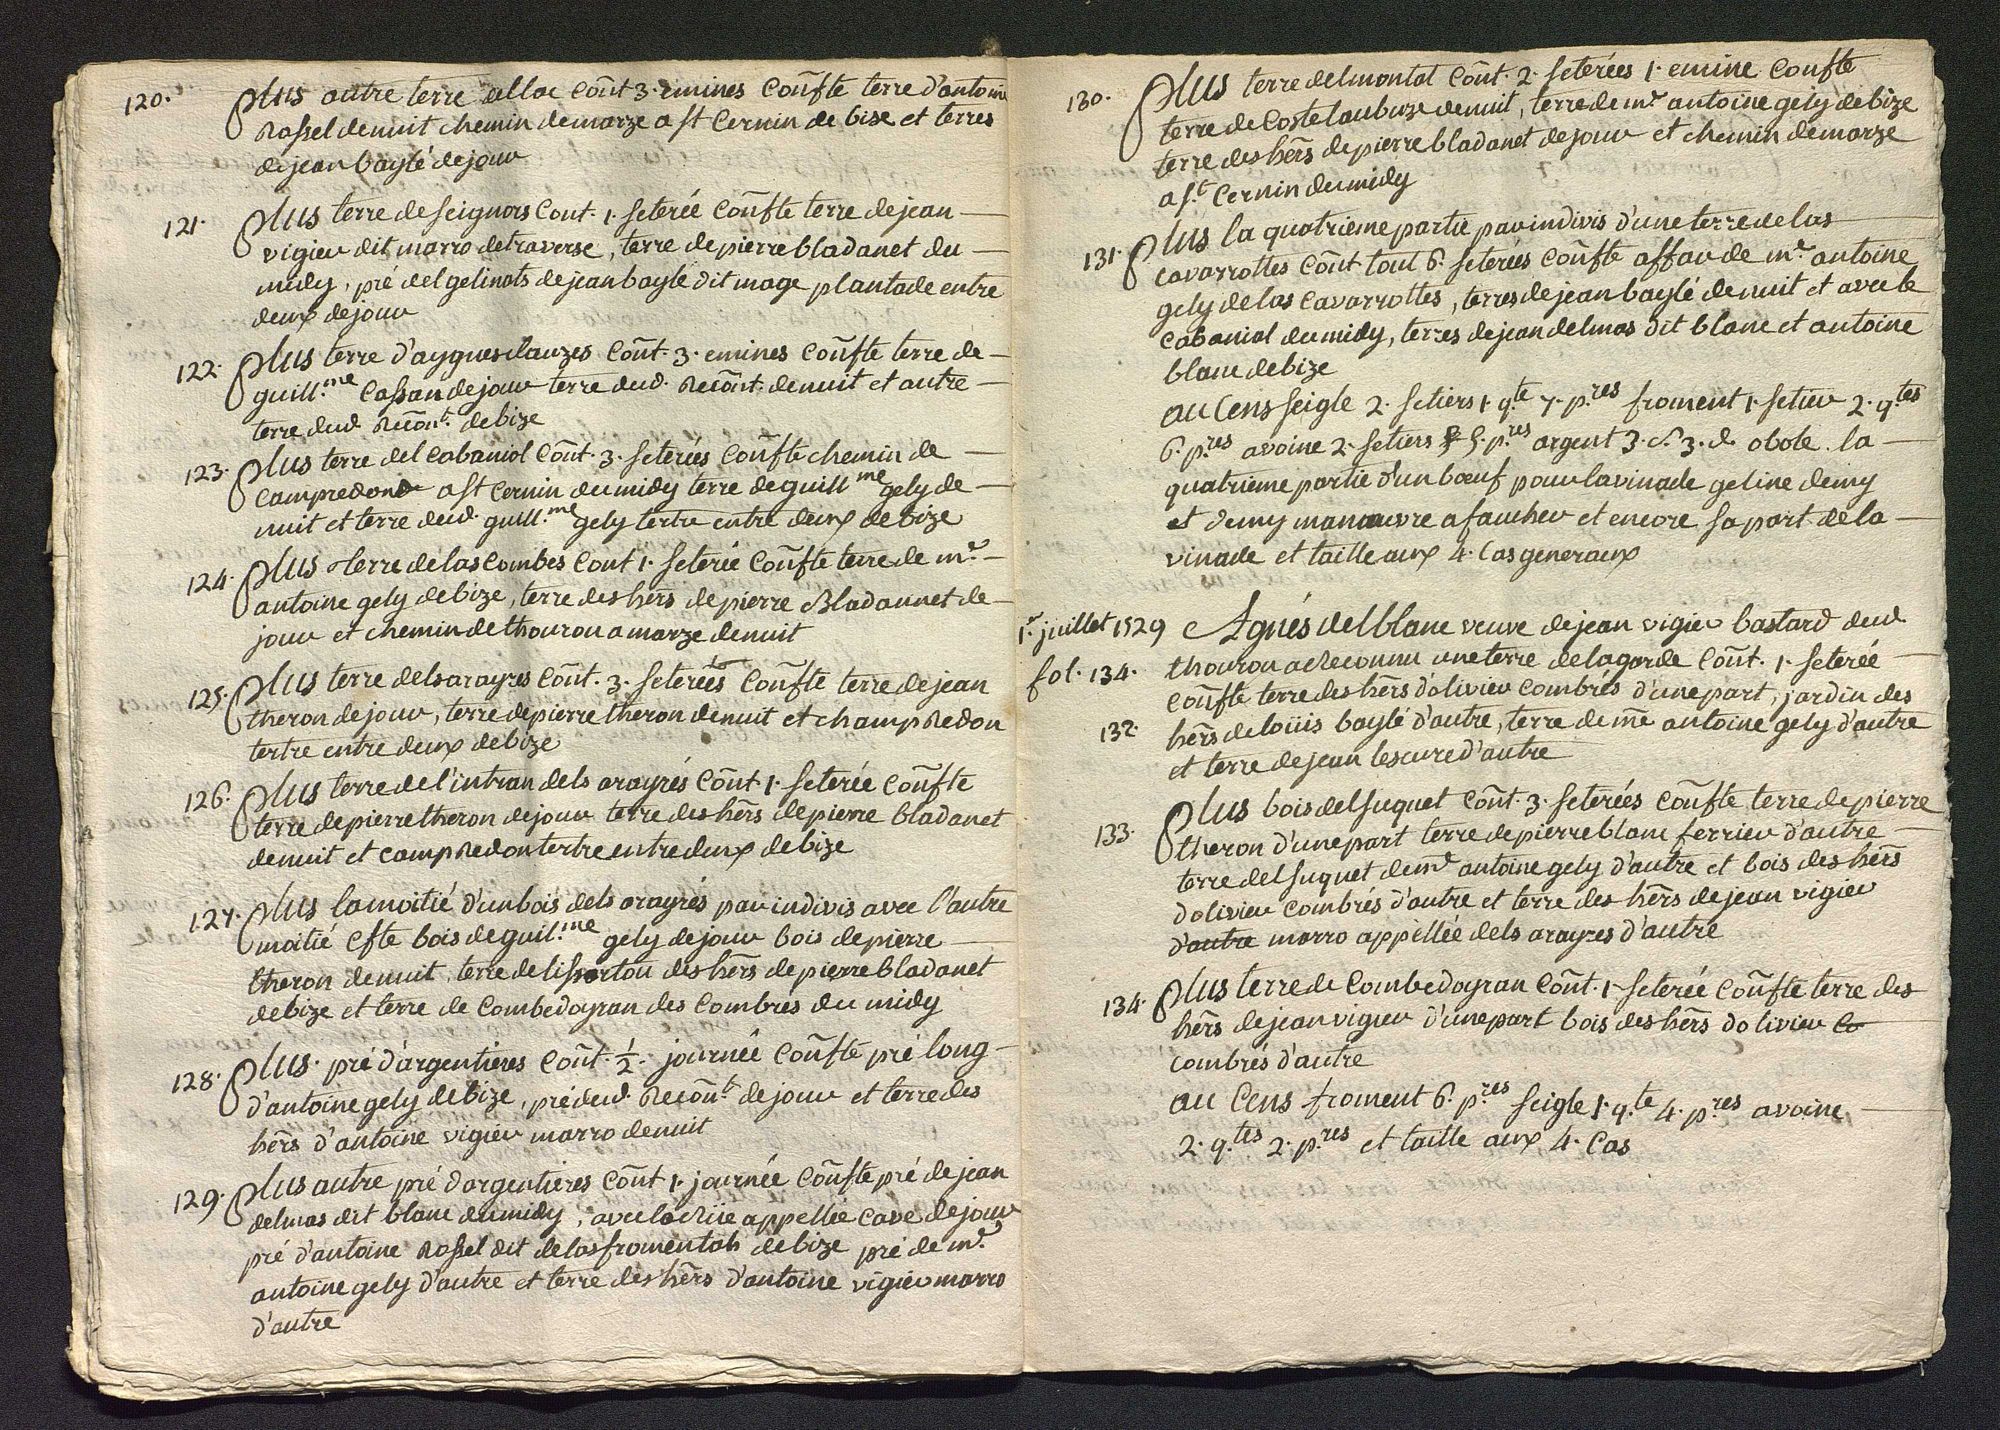 120. Plus autre terre del lac cont̃ 3. emines confte terre d'antoine
Rossel de nuit chemin de marze a st Cernin de bise et terres
de jean bayle de jour
121. Plus terre de seignors cont. 1. seterée confte terre de jean
vigier dit marro de traverse, terre de pierre bladanet du
midy, pré del gelinots de jean bayle dit mage plantade entre
deux de jour
122. Plus terre d'aygues clauzes cont̃. 3. emines confte terre de
guill.me Cassan de jour terre dud. Recon̂t. de nuit et autre
terre dud. Recon̂t. de bize
123. Plus terre del cabaniol Cont̃. 3. seterées confte chemin de
campredon a st Cernin du midy terre de guill.me gely de
nuit et terre dud. guill.me gely tertre entre deux de bize
124. Plus terre de las combes Cont 1. seterée confte terre de mr.
antoine gely de bize, terre des hers de pierre Bladannet de
jour et chemin de thourou a marze de nuit
125. Plus terre dels arayres Cont̃. 3. seterées confte terre de jean
theron de jour, terre de pierre theron de nuit et champ Redon
tertre entre deux de bize
126. Plus terre de l'intran dels arayrés Cont̃. 1. seterée confte
terre de pierre theron de jour terre des hers de pierre bladanet
de nuit et camp Redon tertre entre deux de bize
127. Plus la moitié d'un bois dels arayrés par indivis avec l'autre
moitié cfte bois de guil.me gely de jour bois de pierre
theron de nuit, terre de des hers de pierre bladanet
de bize et terre de Combedayran des Combres du midy
128. Plus. pré d'argentieres Cont̃. ½. journée confte pré long
d'antoine gely de bize, pré dud. Recon̂t. de jour et terre des
hers d'antoine vigier marro de nuit
129. Plus autre pré d'argentieres Cont̃ 1. journée confte pré de jean
delmas dit blanc du midy, avec la Riie appellée cave de jour
pré d'antoine Rossel dit de las fromentals de bize pré de mr.
antoine gely d'autre et terre des hers d'antoine vigier marro
d'autre
130. Plus terre del montat Cont̃. 2. seterées 1. emine confte
terre de Coste laubuze de nuit, terre de mr antoine gely de bize
terre des hers de pierre bladanet de jour et chemin de marze
a st. Cernin du midy
131. Plus la quatrieme partie par indivis d'une terre de las
cavarrottes Cont̃ tout 6. seterées confte affar de mr. antoine
gely de las cavarrottes, terres de jean baylé de nuit et avec le
cabaniol du midy, terres de jean delmas dit blanc et antoine
blanc de bize
au Cens seigle 2. setiers 1. q.te 7. p.res froment 1. setier 2. q.tes
6. p.res avoine 2. setiers 5. p.res argent 3. s. 3. d. obole. la
quatrieme partie d'un bœuf pour la vinade geline demy
et demy manœuvre a faucher et encore sa part de la
vinade et taille aux 4. Cas generaux
1r. juillet 1529 Agnés del blanc veuve de jean vigier bastard dud.
fol. 134. thourou a Reconnu une terre de lagarde Cont̃. 1. seterée
confte terre des hers d'olivier combrés d'une part, jardin des
132. hers de loüis baylé d'autre, terre de me antoine gely d'autre
et terre de jean lescure d'autre
133. Plus bois del suquet Cont̃. 3. seterées confte terre de pierre
theron d'une part terre de pierre blanc ferrier d'autre
terre del suquet de mr antoine gely d'autre et bois des hers
d'olivier combrés d'autre et terre des hers de jean vigier
d'autre marro appellée dels arayres d'autre
134. Plus terre de Combedayran Cont̃. 1. seterée confte terre des
hers de jean vigier d'une part bois des hers d'olivier Co
combrés d'autre
au Cens froment 6. p.res seigle 1. q.te 4. p.res avoine
2. q.tes 2. p.res et taille aux 4. Cas